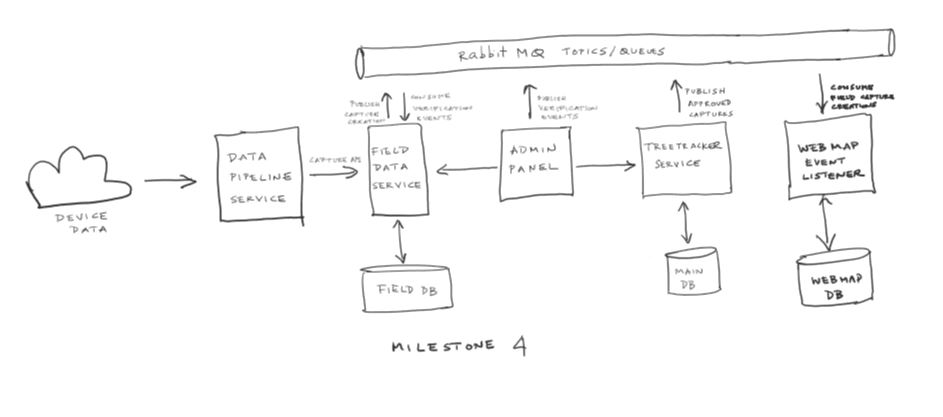 Rabbit MQ TOPICS/QUEUES
PUBLISH
CAPTURE
CREATION
CONSUME
VERIFICATION
EVENTS
PUBLISH
VERIFICATION
EVENTS
PUBLISH
APPROVED
CAPTURES
CONSUME
FIELD CAPTURE
CREATIONS
DEVICE
DATA
DATA
PIPELINE
SERVICE
CAPTURE API
FIELD
DATA
SERVICE
ADMIN
PANEL
TREETRACKER
SERVICE
WEB MAP
EVENT
LISTENER
FIELD DB
MAIN
DB
WEBMAP
DB
MILESTONE 4